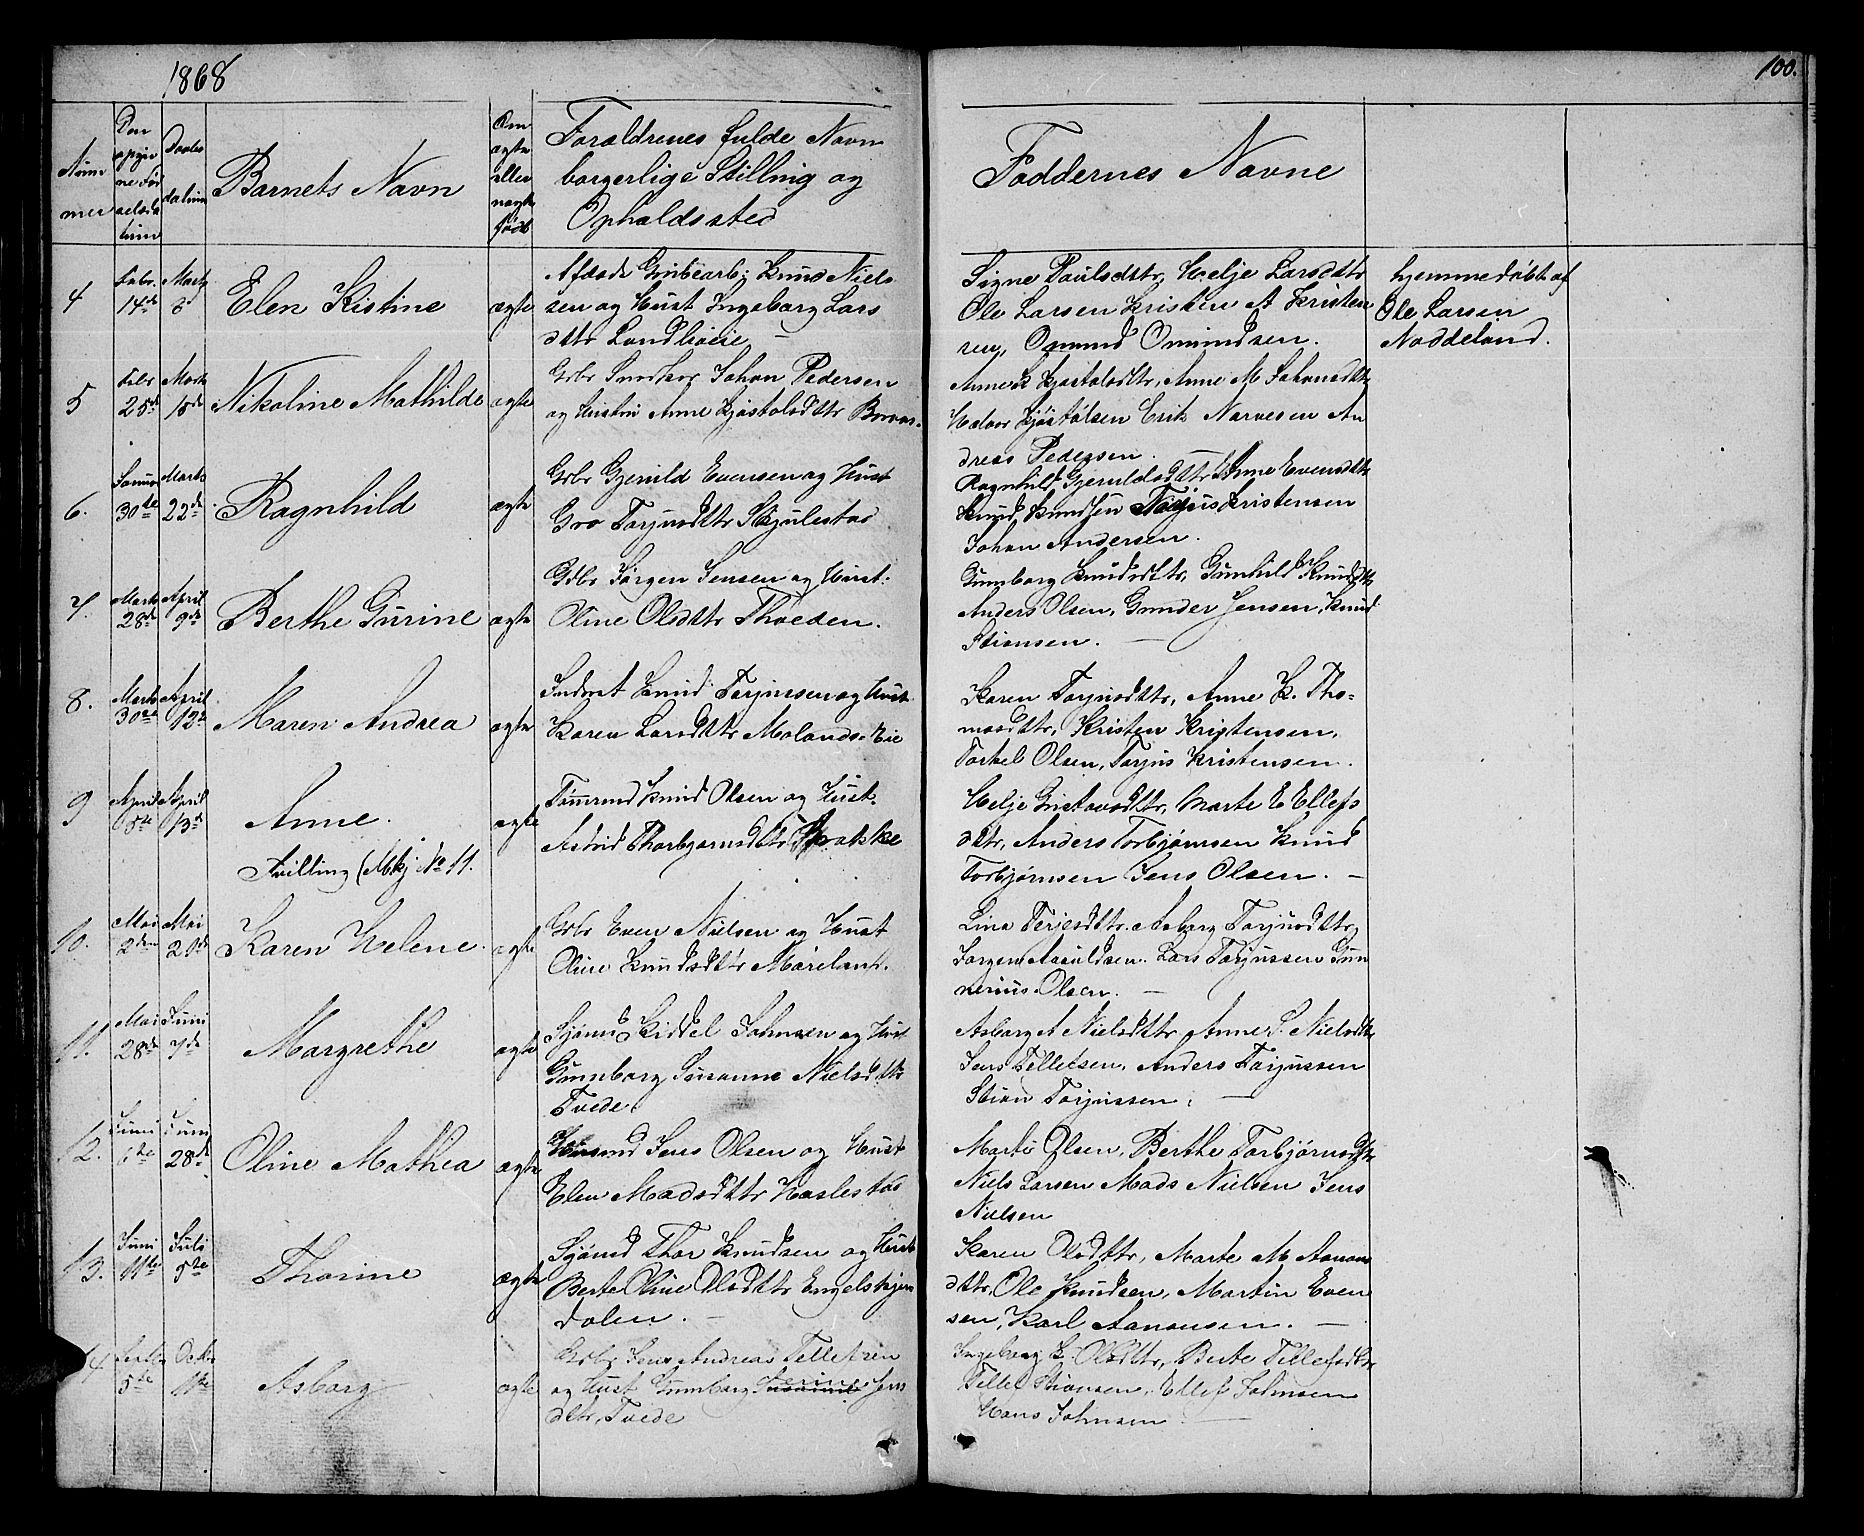 1868
100.
Num
mer
Den
opgiv
ne Fød
selsda
tum
Daabs
datum
Barnets Navn
Om
ægte
eller
uægte
født
Forældrenes fulde Navn
borgerlige Stilling og
Opholdssted
Faddernes Navne
4
Febr.
14de
Marts
8
Elen Kistine
ægte
Afdøde Knud Niel
sen og Hust Ingeborg Lars
dttr
Signe Paulsdttr, Helje Larsdttr
Ole Larsen Kristen A Kristen
sen, Omund Omundsen.
hjemmedøbt af
Ole Larsen
Naddeland.
5
Febr
25de
Marts
15de
Nikoline Mathilde
ægte
Grbr Johan Pedersen
og Hustru Anne Kjøstolsdttr
Anne K Kjøstolsdttr, Anne M Johansdttr
Halvor Kjøstolsen Erik Narvesen An
dreas Pedersen.
6.
Januar
30te
Marts
22de
Ragnhild
ægte
Grbr Gjeruld Evensen og Hust
Gro Torjusdttr Skjulestad
Ragnhild Gjeruldsdttr Anne Evensdttr
Knud Knudsen Torjus Kristensen
Johan Andersen.
7.
Marts
28de
April
9de
Berthe Gurine
ægte
Gdbr Jørgen Jensen og Hust:
Oline Olsdttr Thveden.
Gunnborg Knudsdttr, Gunhild Knudsdttr
Anders Olsen, Gunder Jensen, Knud
Stiansen.
8.
Marts
30te
April
12te
Maren Andrea
ægte
Inderst Knud Torjussen og Hust
Karen Larsdttr Molands Eie
Karen Torjusdttr, Anne K. Tho-
masdttr, Kristen Kristensen,
Torkel Olsen, Torjus Kristensen.
9
April
8de
April
13de
Anne.
Tvilling (Mkj No 11.
ægte
Tømrmd Knud Olsen og Hust.
Astrid Thorbjørnsdttr Spakke
Helje Gustavsdttr, Marte E Ellefs
dttr, Anders Torbjørnsen Knud
Torbjørnsen Jens Olsen. –
10.
Mai
2den
Mai
20de
Karen Helene.
ægte
Grbr Even Nielsen og Hust
Oline Knudsdttr Møreland.
Lina Terjesdttr, Asborg Torjusdttr,
Jørgen Aasuldsen. Lars Torjussen Gun
nerius Olsen. –
11.
Mai
28de
Juni
7de
Margrethe
ægte
Sjømd Kiddel Johnsen og Hust
Gunnborg Susanne Nielsdttr
Tvede.
Asborg A Nielsdttr Anne S. Nielsdttr
Jens Tellefsen, Anders Torjussen
Stian Torjussen,
12.
Juni
6te
Juni
28de
Oline Mathea
ægte
Husmd Jens Olsen og Hust
Elen Madsdttr Haslestad
Marte Olsen, Berthe Torbjørnsdttr
Niels Larsen Mads Nielsen Jens
Nielsen
13.
Juni
11te
Juli
5te
Thorine
ægte
Sjømd Thor Knudsen og Hust
Berte Oline Olsdttr Engelskjøn
dalen. –
Karen Olsdttr, Marte M Aanon
dttr, Ole Knudsen, Martin Even
sen, Karl Aanonsen. –
14
Septbr
5te
Octbr
11te
Asborg
ægte
Grbr Jens Andreas Tellefsen
og Hust Gunnborg Serine Jens
dttr, Tvede
Ingeborg K. Olsdttr, Berte Tellefsdttr
Tellef Stiansen, Ellef Johnsen
Hans Johnsen